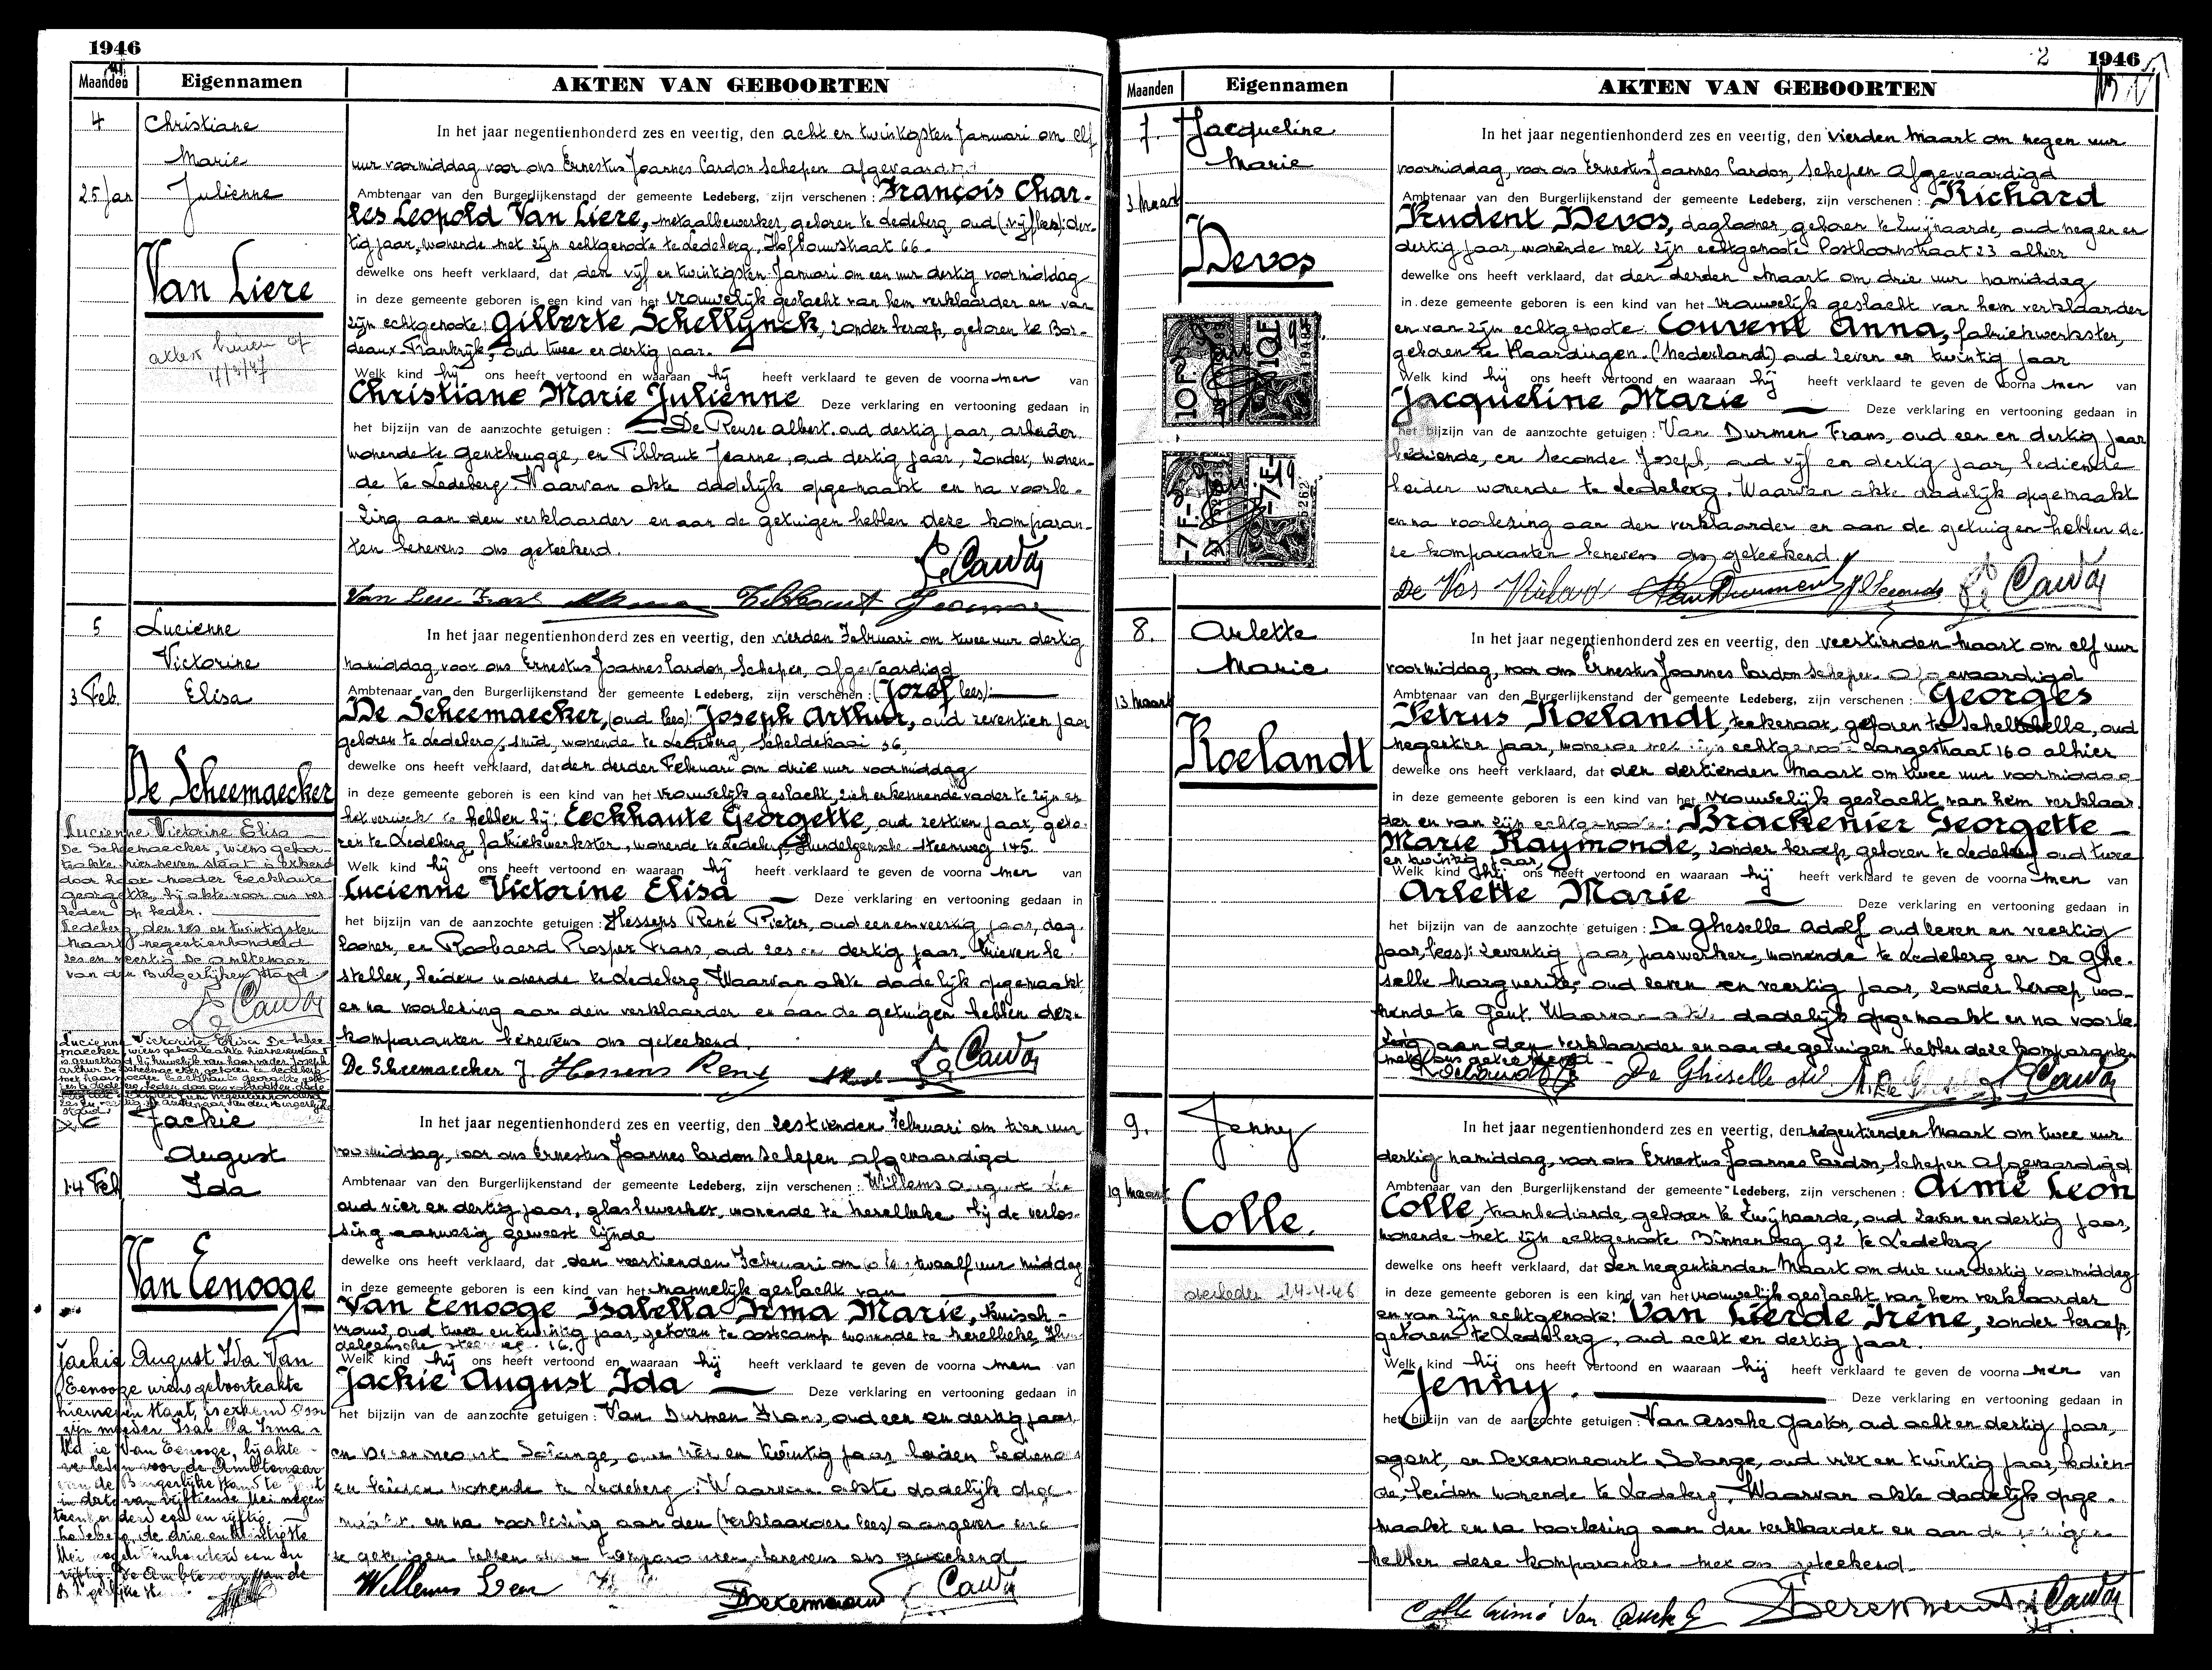 1946
Maanden Eigennamen AKTEN VAN GEBOORTEN
4
25 Jan
Christiane
Marie
Julienne
Van Liere
akten
17/3/47
In het jaar negentienhonderd zes en veertig, den acht en twintigsten Januari om elf
uur voormiddag voor ons Ernestus Joannes Cardon Schepen afgevaardigd
Ambtenaar van den Burgerlijkenstand der gemeente Ledeberg, zijn verschenen: François Char-
les Leopold Van Liere, metaalbewerker, geboren te Ledeberg oud (vijf lees) der-
tig jaar, wonende met zijn echtgenote te Ledeberg, Hofbouwstraat 66.
dewelke ons heeft verklaard, dat den vijf en twintigsten Januari om een uur dertig voormiddag
in deze gemeente geboren is een kind van het vrouwelijk geslacht van hem verklaarder en van
zijn echtgenote: Gilberte Schellynck, zonder beroep, geboren te Bor-
deaux Frankrijk, oud twee en dertig jaar.
Welk kind hij ons heeft vertoond en waaraan hij heeft verklaard te geven de voorna men van
Christiane Marie Julienne Deze verklaring en vertooning gedaan in
het bijzijn van de aanzochte getuigen: De Reuse Albert oud dertig jaar, arbeider
wonende te Gentbrugge, en Tibbaut Jeanne, oud dertig jaar, zonder, wonen-
de te Ledeberg. Waarvan akte dadelijk opgemaakt en na voorle-
zing aan den verklaarder en aan de getuigen hebben deze komparan-
ten benevens ons geteekend.
Van Liere Frans Tibbaut Jeanne Cardon
5
3 Feb.
Lucienne
Victorine
Elisa
De Scheemaecker
Lucienne Victorine Elisa
De Scheemaecker, wiens geboor-
teakte hierneven staat is erkend
door haar moeder Eeckhaute
Georgette, bij akte voor ons ver
leden op heden.
Ledeberg, den zes en twintigsten
Maart negentienhonderd
zes en veertig De Ambtenaar
van den Burgerlijken stand
Cardon
Lucienne Victorine Elisa De Schee
maecker, wiens geboorteakte hierneven staat
is gewettigd bij huwelijk van haar vader Joseph
Arthur De Scheemaecker, geboren te Ledeberg
met haar moeder Eeckhaute Georgette
In het jaar negentienhonderd zes en veertig, den vierden Februari om twee uur dertig
namiddag, voor ons Ernestus Joannes Cardon, Schepen, afgevaardigd
Ambtenaar van den Burgerlijkenstand der gemeente Ledeberg, zijn verschenen: (Jozef lees):
De Scheemaecker, (oud lees): Joseph Arthur, oud zeventien jaar
geboren te Ledeberg, smid, wonende te Ledeberg, Scheldekaai 36,
dewelke ons heeft verklaard, dat den derden Februari om drie uur voormiddag
in deze gemeente geboren is een kind van het vrouwelijk geslacht, zich erkennende vader te zijn en
het verwekt te hebben bij: Eeckhaute Georgette, oud zestien jaar, gebo-
ren te Ledeberg, fabriekwerkster, wonende te Ledeberg, Hundelgemsche steenweg 145.
Welk kind hij ons heeft vertoond en waaraan hij heeft verklaard te geven de voorna men van
Lucienne Victorine Elisa Deze verklaring en vertooning gedaan in
het bijzijn van de aanzochte getuigen: Hessens René Pieter, oud een en veertig jaar, dag-
looner, en Roobaerd Prosper Frans, oud zes en dertig jaar, brievenbe-
steller, beiden wonende te Ledeberg. Waarvan akte dadelijk opgemaakt
en na voorlezing aan den verklaarder en aan de getuigen hebben deze
komparanten benevens ons geteekend.
De Scheemaecker J. Hessens René Cardon
6
14 Feb
Jackie
August
Ida
Van Eenooge
Jackie August Ida Van
Eenooge wiens geboorteakte
hierneven staat, is erkend door
zijn moeder Isabella Irma
Marie Van Eenooge, bij akte
verleden voor de Ambtenaar
van de Burgerlijke stand te Gent
in date van vijftiende Mei negen
tienhonderd een en vijftig.
Ledeberg, de drie en twintigste
Mei negentienhonderd een en
vijftig. De Ambtenaar van de
In het jaar negentienhonderd zes en veertig, den zestienden Februari om tien uur
voormiddag, voor ons Ernestus Joannes Cardon Schepen afgevaardigd
Ambtenaar van den Burgerlijkenstand der gemeente Ledeberg, zijn verschenen: Willems August
oud vier en dertig jaar, glasbewerker, wonende te Merelbeke bij de verlos-
sing aanwezig geweest zijnde
dewelke ons heeft verklaard, dat den veertienden Februari om twaalf uur middag
in deze gemeente geboren is een kind van het mannelijk geslacht van
Van Eenooge Isabella Irma Marie, kuisch-
vrouw, oud twee en twintig jaar, geboren te Oostcamp wonende te Merelbeke, Hun
delgemsche steenweg 16.
Welk kind hij ons heeft vertoond en waaraan hij heeft verklaard te geven de voorna men van
Jackie August Ida Deze verklaring en vertooning gedaan in
het bijzijn van de aanzochte getuigen: Van Durmen Frans, oud een en dertig jaar,
en Derenoncourt Solange, oud vier en twintig jaar beiden bediende
en beiden wonende te Ledeberg. Waarvan akte dadelijk opge-
maakt en na voorlezing aan den (verklaarder lees) aangever en
de getuigen hebben deze komparanten, benevens ons geteekend
Willems Leon Cardon
2 1946
Maanden Eigennamen AKTEN VAN GEBOORTEN
7.
3 Maart
Jacqueline
Marie
Devos
10 F
10 F
7 F
7 F
In het jaar negentienhonderd zes en veertig, den vierden Maart om negen uur
voormiddag, voor ons Ernestus Joannes Cardon, Schepen Afgevaardigd
Ambtenaar van den Burgerlijkenstand der gemeente Ledeberg, zijn verschenen: Richard
Prudent Devos, daglooner, geboren te Zwijnaarde, oud negen en
dertig jaar, wonende met zijn echtgenoote Posthoornstraat 23 alhier
dewelke ons heeft verklaard, dat den derden Maart om drie uur namiddag
in deze gemeente geboren is een kind van het vrouwelijk geslacht van hem verklaarder
en van zijn echtgenote: Couvent Anna, fabriekwerkster,
geboren te Vlaardingen (Nederland) oud zeven en twintig jaar
Welk kind hij ons heeft vertoond en waaraan hij heeft verklaard te geven de voorna men van
Jacqueline Marie Deze verklaring en vertooning gedaan in
het bijzijn van de aanzochte getuigen: Van Durmen Frans, oud een en dertig jaar
bediende, en Seconde Joseph, oud vijf en dertig jaar, bediende
beiden wonende te Ledeberg. Waarvan akte dadelijk opgemaakt
en na voorlezing aan den verklaarder en aan de getuigen hebben de-
ze komparanten benevens ons geteekend.
De Vos Richard Van Durmen J. Seconde Cardon
8.
13 Maart
Arlette
Marie
Roelandt
In het jaar negentienhonderd zes en veertig, den veertienden Maart om elf uur
voormiddag, voor ons Ernestus Joannes Cardon Schepen afgevaardigd
Ambtenaar van den Burgerlijkenstand der gemeente Ledeberg, zijn verschenen: Georges
Petrus Roelandt, teekenaar, geboren te Scheldebelle, oud
negentien jaar, wonende met zijn echtgenoote Langestraat 160 alhier
dewelke ons heeft verklaard, dat den dertienden Maart om twee uur voormiddag
in deze gemeente geboren is een kind van het vrouwelijk geslacht van hem verklaar
der en van zijn echtgenoote: Brackenier Georgette
Marie Raymonde, zonder beroep, geboren te Ledeberg oud twee
en twintig jaar,
Welk kind hij ons heeft vertoond en waaraan hij heeft verklaard te geven de voorna men van
Arlette Marie Deze verklaring en vertooning gedaan in
het bijzijn van de aanzochte getuigen: De Gheselle Adolf oud zeven en veertig
jaar, (lees): zeventig jaar, paswerker, wonende te Ledeberg en De Ghe-
selle Marguerite, oud zeven en veertig jaar, zonder beroep, wo-
nende te Gent. Waarvan akte dadelijk opgemaakt en na voorle-
zing aan den verklaarder en aan de getuigen hebben deze komparanten
met ons geteekend
Roelandt De Gheselle Cardon
9.
19 Maart
Jenny
Colle.
overleden 24-4-46
In het jaar negentienhonderd zes en veertig, den negentienden Maart om twee uur
dertig namiddag, voor ons Ernestus Joannes Cardon, Schepen Afgevaardigd
Ambtenaar van den Burgerlijkenstand der gemeente Ledeberg, zijn verschenen: Aimé Leon
Colle, trambediende, geboren te Zwijnaarde, oud zeven en dertig jaar,
wonende met zijn echtgenoote Binnenweg 92 te Ledeberg
dewelke ons heeft verklaard, dat den negentienden Maart om drie uur dertig voormiddag
in deze gemeente geboren is een kind van het vrouwelijk geslacht van hem verklaarder
en van zijn echtgenote: Van Lierde Irène, zonder beroep,
geboren te Ledeberg, oud acht en dertig jaar.
Welk kind hij ons heeft vertoond en waaraan hij heeft verklaard te geven de voorna men van
Jenny. Deze verklaring en vertooning gedaan in
het bijzijn van de aanzochte getuigen: Van Assche Gaston, oud acht en dertig jaar,
agent, en Derenoncourt Solange, oud vier en twintig jaar, bedien-
de, beiden wonende te Ledeberg. Waarvan akte dadelijk opge-
maakt en na voorlezing aan den verklaarder en aan de getuigen
hebben deze komparanten met ons geteekend.
Colle Aimé Van Cardon